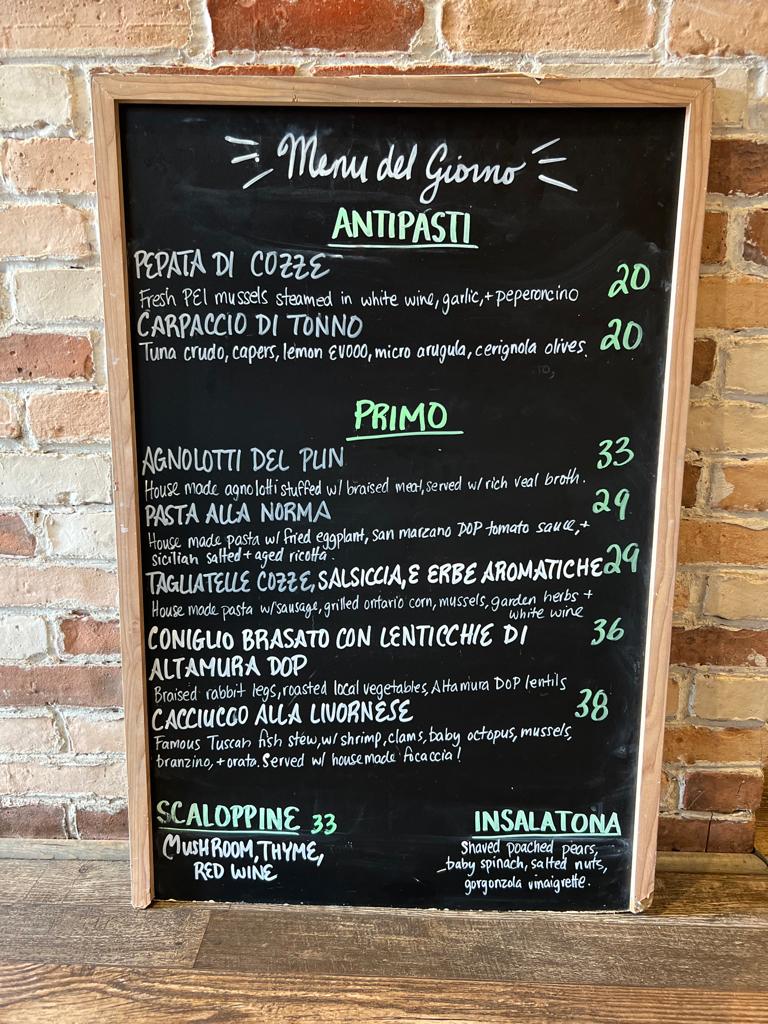 Menu del Giorno
ANTIPASTI
PEPATA DI COZZE
Fresh PEI mussels steamed in white wine, garlic, + peperoncino 20
CARPACCIO DI TONNO
Tuna crudo, capers, lemon EVOOO, micro arugula, cerignola olives. 20
PRIMO
AGNOLOTTI DEL PLIN 33
House made agnolotti stuffed w/ braised meat, served w/ rich veal broth.
PASTA ALLA NORMA 29
House made pasta w/ fried eggplant, san marzano DOP tomato sauce, +
sicilian salted + aged ricotta.
TAGLIATELLE COZZE, SALSICCIA, E ERBE AROMATICHE 29
House made pasta w/ sausage, grilled ontario corn, mussels, garden herbs +
white wine
CONIGLIO BRASATO CON LENTICCHIE DI 36
ALTAMURA DOP
Braised rabbit legs, roasted local vegetables, Altamura DOP lentils
CACCIUCCO ALLA LIVORNESE 38
Famous Tuscan fish stew, w/ shrimp, clams, baby octopus, mussels,
branzino, + orata. Served w/ housemade focaccia!
SCALOPPINE 33
MUSHROOM, THYME,
RED WINE
INSALATONA
Shaved poached pears,
baby spinach, salted nuts,
gorgonzola vinaigrette.